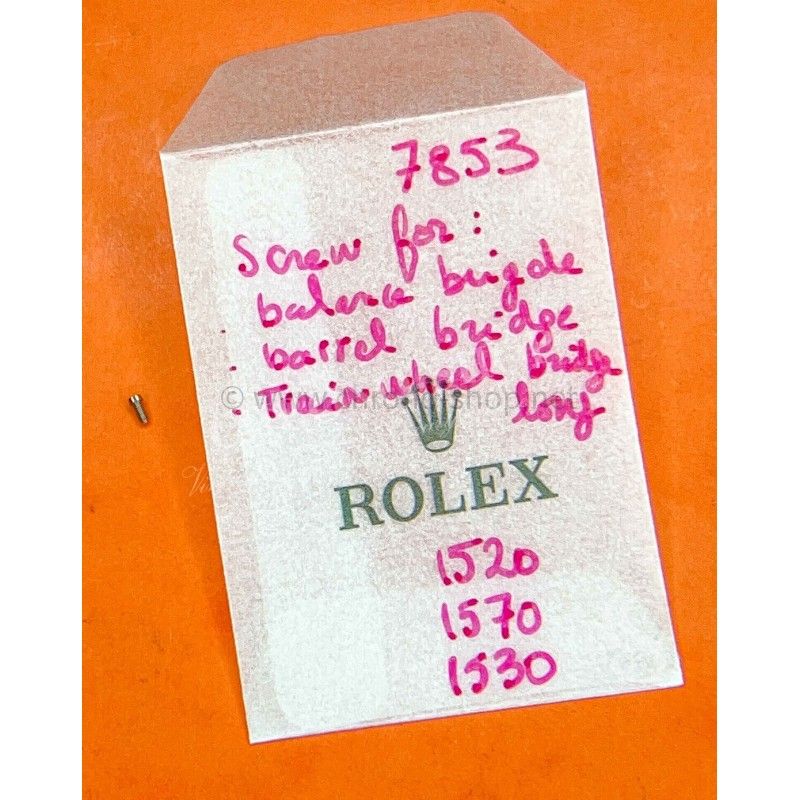 7853
Screw for:
balance brigde
· barrel bridge
· Train wheel bridge
long
ROLEX
1520
1570
1530